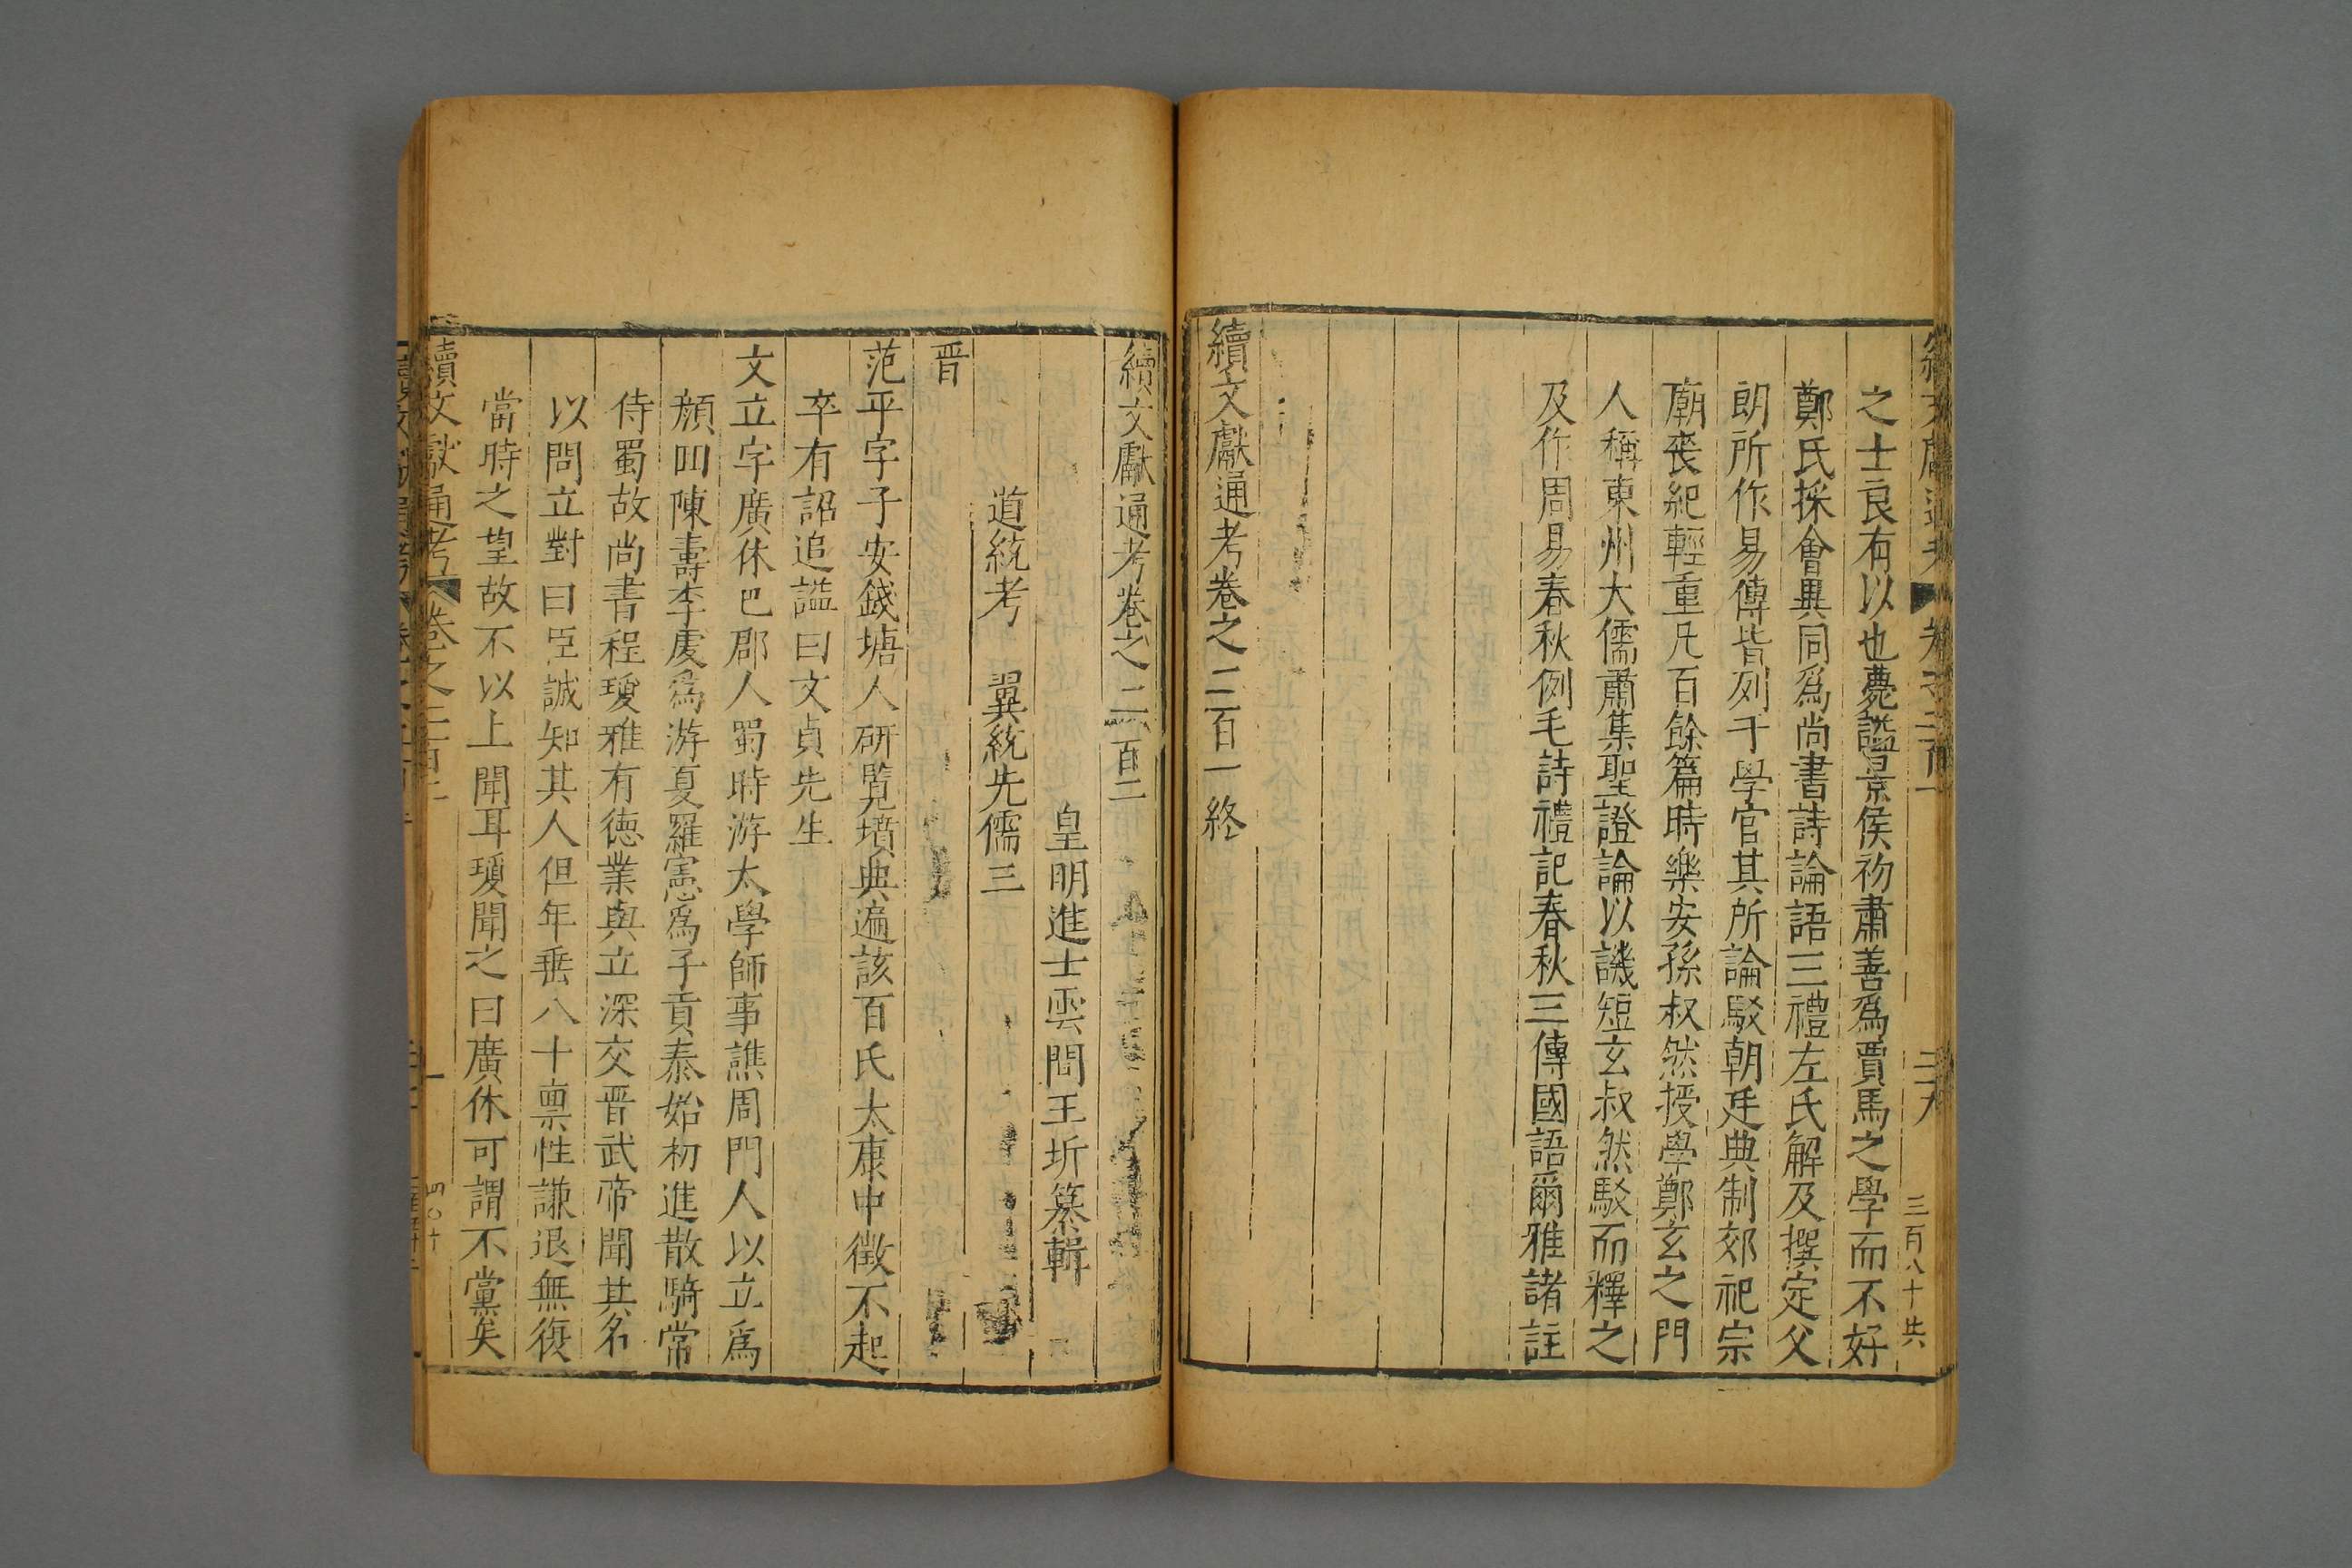 之士良有以也薨謚景侯初肅善爲賈馬之學而不好
鄭氏採會異同爲尚書詩論語三禮左氏解及撰定父
朗所作易傳皆列于學官其所論駁朝廷典制郊祀宗
廟喪紀輕重凡百餘篇時樂安孫叔然授學鄭玄之門
人稱東州大儒肅集聖證論以譏短玄叔然駁而釋之
及作周易春秋例毛詩禮記春秋三傳國語爾雅諸註
續文獻通考卷之二百一終
續文獻通考卷之二百二
皇明進士雲間王圻纂輯
道統考 翼統先儒三
晉
范平字子安錢塘人研覽墳典遍該百氏太康中徵不起
卒有詔追謚曰文貞先生
文立字廣休巴郡人蜀時游太學師事譙周門人以立爲
顏回陳壽李虔爲游夏羅憲爲子貢泰始初進散騎常
侍蜀故尚書程瓊雅有德業與立深交晉武帝聞其名
以問立對曰臣誠知其人但年垂八十禀性謙退無復
當時之望故不以上聞耳瓊聞之曰廣休可謂不黨矣
續文獻通考 卷之二百二 一